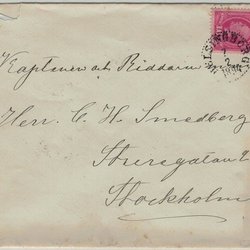 Kaptenen och Riddaren
Herr C. H. Smedberg
Sturegatan
Stockholm